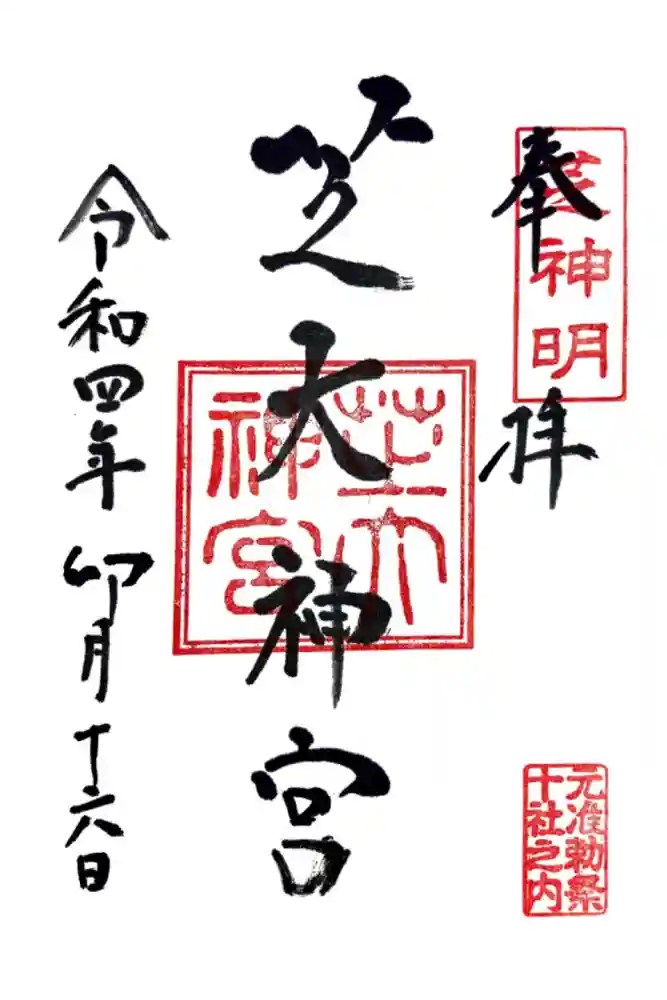 奉拝
芝神明
元准勅祭
十社之内
芝大神宮
芝大
神宮
令和四年卯月十六日